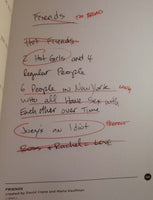 Friends TOO BROAD
Hot Friends
2 Hot Girls and 4
Regular People
6 People in New York LONG
Who all Have Sex with
Each other over Time
Joey's an Idiot PERFECT
Ross & Rachel = Love
FRIENDS
created by David Crane and Marta Kauffman